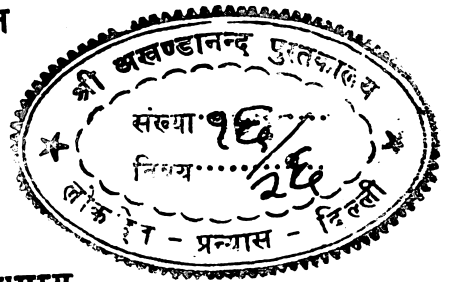 श्री अखण्डानन्द पुस्तकालय
संख्या १६/२६
विषय
लोक हित - प्रन्यास - दिल्ली